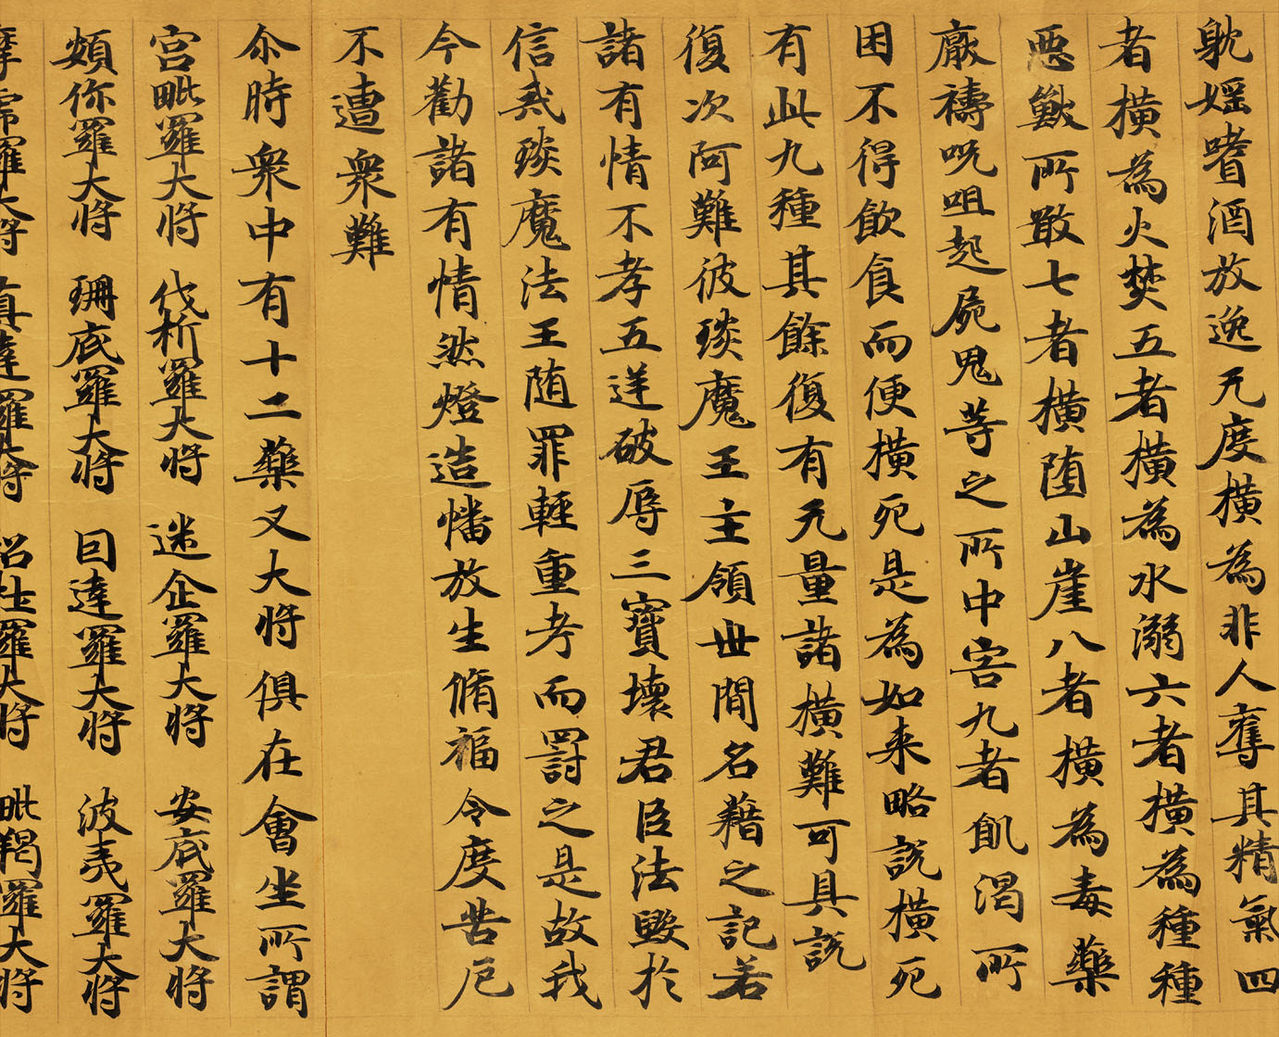 躭婬嗜酒放逸无度横為非人奪其精氣四
者横為火焚五者横為水溺六者横為種種
惡獸所敢七者横堕山崖八者横為毒藥
厭禱呪咀起屍鬼等之所中害九者飢渴所
困不得飲食而便横死是為如来略説横死
有此九種其餘復有无量諸横難可具説
復次阿難彼琰魔王主領世間名藉之記若
諸有情不孝五逆破辱三寶壞君臣法毀於
信戒琰魔法王随罪輕重考而罰之是故我
今勸諸有情然燈造幡放生脩福令度苦厄
不遭衆難
尒時衆中有十二藥叉大将俱在會坐所謂
宫毗羅大将 伐析羅大将 迷企羅大将 安底羅大将
頞你羅大将 珊底羅大将 因達羅大将 波夷羅大将
摩虎羅大将 真達羅大将 招杜羅大将 毗羯羅大将